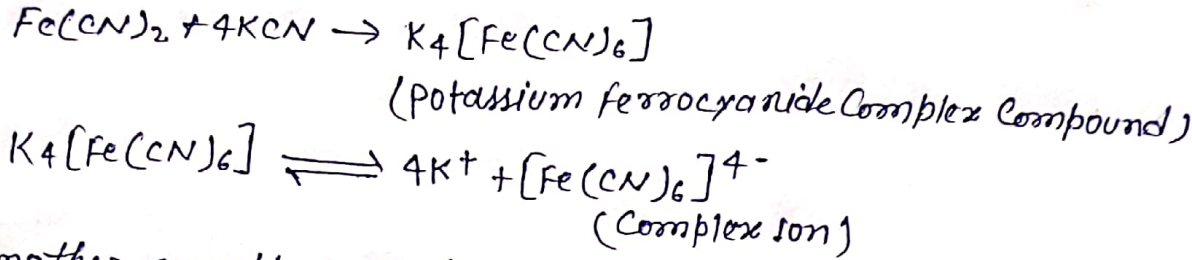 Fe(CN)₂ + 4KCN → K₄[Fe(CN)₆]
(Potassium ferrocyanide Complex Compound)
K₄[Fe(CN)₆] ⇌ 4K⁺ + [Fe(CN)₆]⁴⁻
(Complex ion)